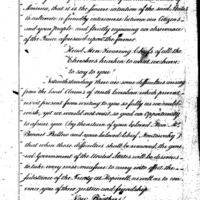 America, that it is the sincere intention of the United States
to cultivate a friendly intercourse between our Citizens
and your people, and strictly enjoining an observance
of the
"Head Men & Warriors Chiefs of all the
Cherokees hearken to what we have
to say to you"
Notwithstanding there are some difficulties arising
from the local claims of North Carolina, which prevent
us at present from writing to you so fully as we could
wish, yet we would not omit so good an opportunity
to assure you by the return of your beloved
Bennet Ballew and your beloved Chief
that when those difficulties shall be removed, the gen-
eral Government of the United States will be desirous
to take every wise measure to carry into effect the
substance of the Treaty at Hopewell, as well as to con-
vince you of their justice and friendship.
Brothers